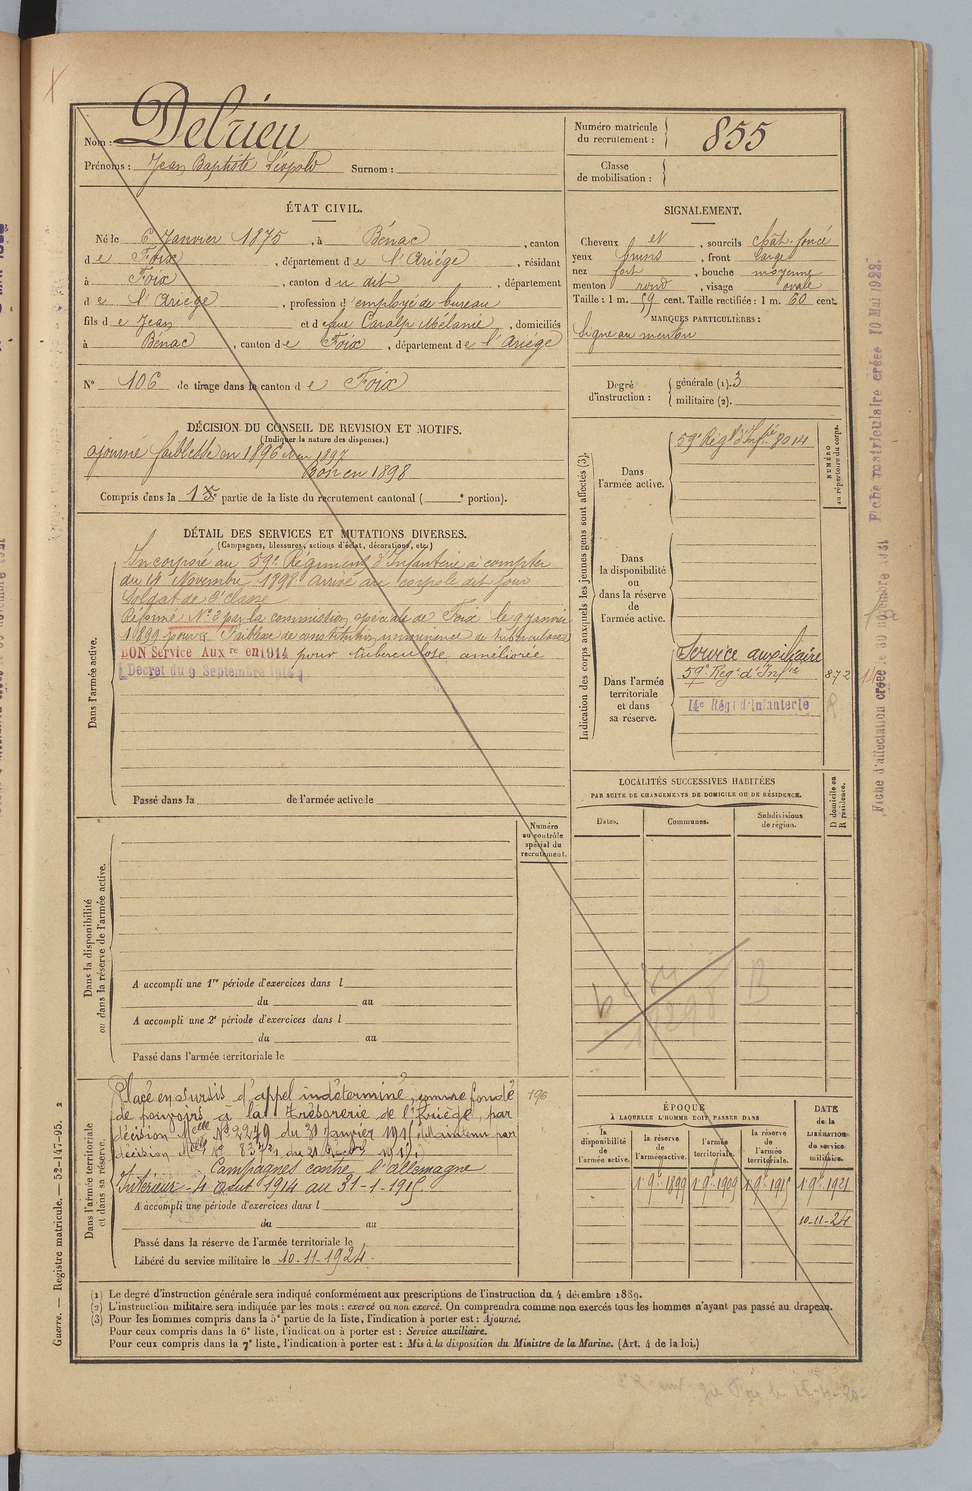 Nom : Delrieu
Prénoms : Jean Baptiste Léopold Surnom :
Numéro matricule du recrutement : 855
Classe de mobilisation :
ÉTAT CIVIL.
Né le 6 Janvier 1875, à Bénac, canton
de Foix, département de l'Ariège, résidant
à Foix, canton du dit, département
de l'Ariège, profession d'employé de bureau
fils de Jean et de feue Caralp Mélanie, domiciliés
à Bénac, canton de Foix, département de l'Ariège
N° 106 de tirage dans le canton de Foix
SIGNALEMENT.
Cheveux et, sourcils chât. foncé
yeux bruns, front large
nez fort, bouche moyenne
menton rond, visage ovale
Taille : 1 m. 59 cent. Taille rectifiée : 1 m. 60 cent.
MARQUES PARTICULIÈRES :
Signe au menton
Degré d'instruction : générale (1). 3
militaire (2).
DÉCISION DU CONSEIL DE REVISION ET MOTIFS.
(Indiquer la nature des dispenses.)
ajourné faiblesse en 1896 et en 1897
Bon en 1898
Compris dans la 1re partie de la liste du recrutement cantonal ( e portion).
DÉTAIL DES SERVICES ET MUTATIONS DIVERSES.
(Campagnes, blessures, actions d'éclat, décorations, etc.)
Dans l'armée active.
Incorporé au 59e Régiment d'Infanterie à compter
du 14 Novembre 1898. Arrivé au corps le dit jour
Soldat de 2e classe
Réformé N° 2 par la commission spéciale de Foix le 9 janvier
1899 pour Faiblesse de constitution, imminence de tuberculose
BON Service Auxre en 1914 pour tuberculose améliorée
Décret du 9 Septembre 1914
Passé dans la de l'armée active le
Indication des corps auxquels les jeunes gens sont affectés (3).
NUMÉRO au répertoire du corps.
Dans l'armée active.
59e Régt d'Infie 8014
Dans la disponibilité ou dans la réserve de l'armée active.
Dans l'armée territoriale et dans sa réserve.
Service auxiliaire
59e Régt d'Infie 872
14e Régt d'Infanterie
R
LOCALITÉS SUCCESSIVES HABITÉES
PAR SUITE DE CHANGEMENTS DE DOMICILE OU DE RÉSIDENCE.
Dates. Communes. Subdivisions de région. D domicile ou R résidence.
Dans la disponibilité ou dans la réserve de l'armée active.
Numéro au contrôle spécial du recrutement.
A accompli une 1re période d'exercices dans l
du au
A accompli une 2e période d'exercices dans l
du au
Passé dans l'armée territoriale le
1898
B
Dans l'armée territoriale et dans sa réserve.
Placé en sursis d'appel indéterminé, comme fondé
de pouvoirs à la Trésorerie de l'Ariège, par
décision Melle N° 2279 du 31 Janvier 1915 (Maintenu par
196
Campagnes contre l'allemagne
Intérieur - 4 août 1914 au 31-1-1915
A accompli une période d'exercices dans l
du au
Passé dans la réserve de l'armée territoriale le
Libéré du service militaire le 10-11-1924.
ÉPOQUE
À LAQUELLE L'HOMME DOIT PASSER DANS
la disponibilité de l'armée active. la réserve de l'armée active. l'armée territoriale. la réserve de l'armée territoriale.
DATE de la LIBÉRATION du service militaire.
1 9bre 1899 1 9bre 1909 1 9bre 1915 1 9bre 1921
10-11-24
(1) Le degré d'instruction générale sera indiqué conformément aux prescriptions de l'instruction du 4 décembre 1889.
(2) L'instruction militaire sera indiquée par les mots : exercé ou non exercé. On comprendra comme non exercés tous les hommes n'ayant pas passé au drapeau.
(3) Pour les hommes compris dans la 5e partie de la liste, l'indication à porter est : Ajourné.
Pour ceux compris dans la 6e liste, l'indication à porter est : Service auxiliaire.
Pour ceux compris dans la 7e liste, l'indication à porter est : Mis à la disposition du Ministre de la Marine. (Art. 4 de la loi.)
Guerre. — Registre matricule. — 52-147-95. 2
Fiche matriculaire créée 10 Mai 1922.
Fiche d'affectation créée le 30 novembre 1921